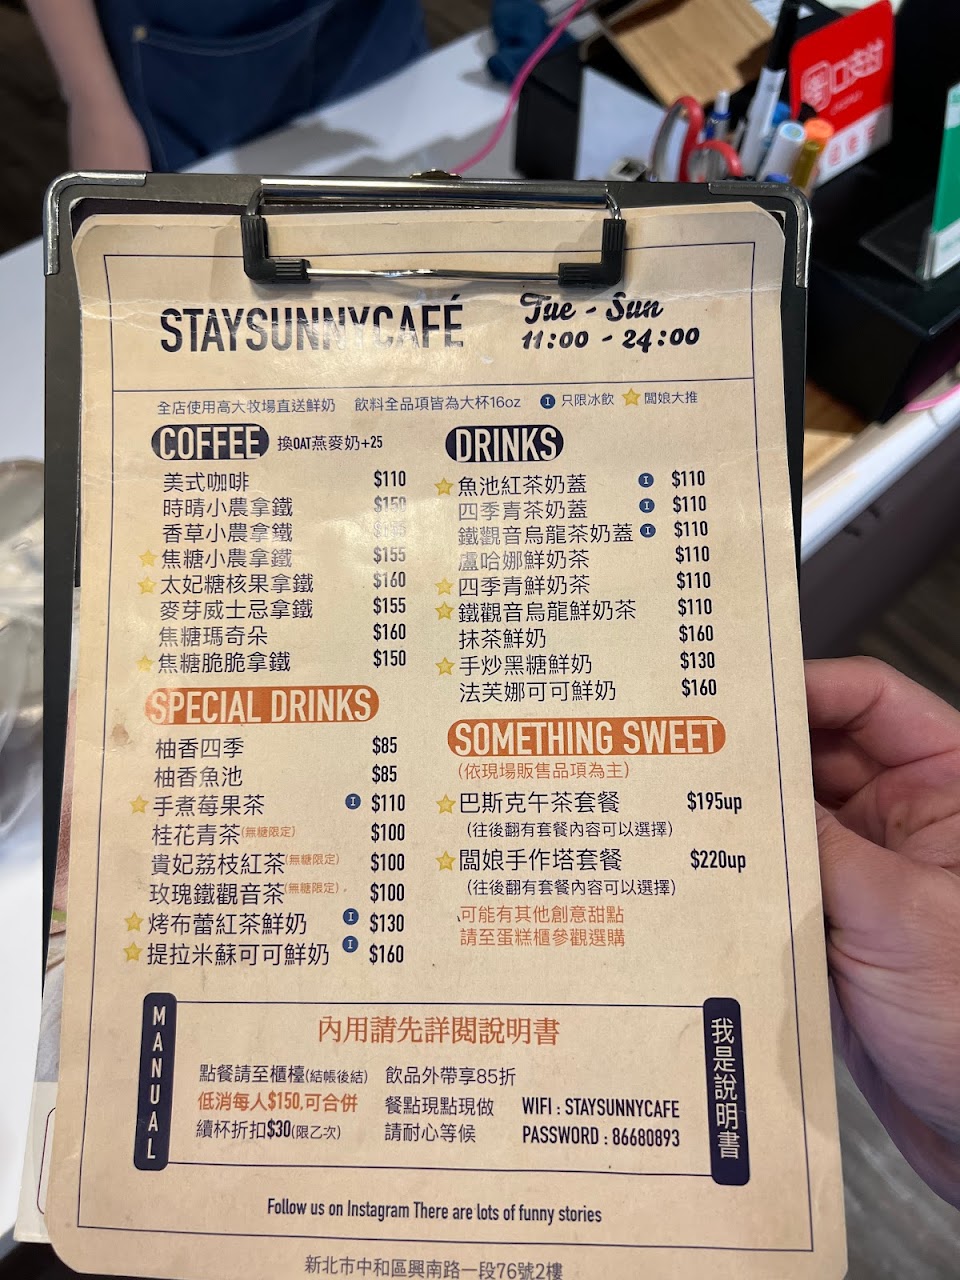 STAYSUNNYCAFÉ
Tue - Sun
11:00 - 24:00
全店使用高大牧場直送鮮奶 飲料全品項皆為大杯16oz I 只限冰飲 闆娘大推
COFFEE 換OAT燕麥奶+25
美式咖啡 $110
時晴小農拿鐵 $150
香草小農拿鐵
焦糖小農拿鐵 $155
太妃糖核果拿鐵 $160
麥芽威士忌拿鐵 $155
焦糖瑪奇朵 $160
焦糖脆脆拿鐵 $150
SPECIAL DRINKS
柚香四季 $85
柚香魚池 $85
手煮莓果茶 I $110
桂花青茶(無糖限定) $100
貴妃荔枝紅茶(無糖限定) $100
玫瑰鐵觀音茶(無糖限定) $100
烤布蕾紅茶鮮奶 I $130
提拉米蘇可可鮮奶 I $160
DRINKS
魚池紅茶奶蓋 I $110
四季青茶奶蓋 I $110
鐵觀音烏龍茶奶蓋 I $110
盧哈娜鮮奶茶 $110
四季青鮮奶茶 $110
鐵觀音烏龍鮮奶茶 $110
抹茶鮮奶 $160
手炒黑糖鮮奶 $130
法芙娜可可鮮奶 $160
SOMETHING SWEET
(依現場販售品項為主)
巴斯克午茶套餐 $195up
(往後翻有套餐內容可以選擇)
闆娘手作塔套餐 $220up
(往後翻有套餐內容可以選擇)
可能有其他創意甜點
請至蛋糕櫃參觀選購
MANUAL
內用請先詳閱說明書
點餐請至櫃檯(結帳後結) 飲品外帶享85折
低消每人$150,可合併 餐點現點現做 WIFI : STAYSUNNYCAFE
續杯折扣$30(限乙次) 請耐心等候 PASSWORD : 86680893
我是說明書
Follow us on Instagram There are lots of funny stories
新北市中和區興南路一段76號2樓